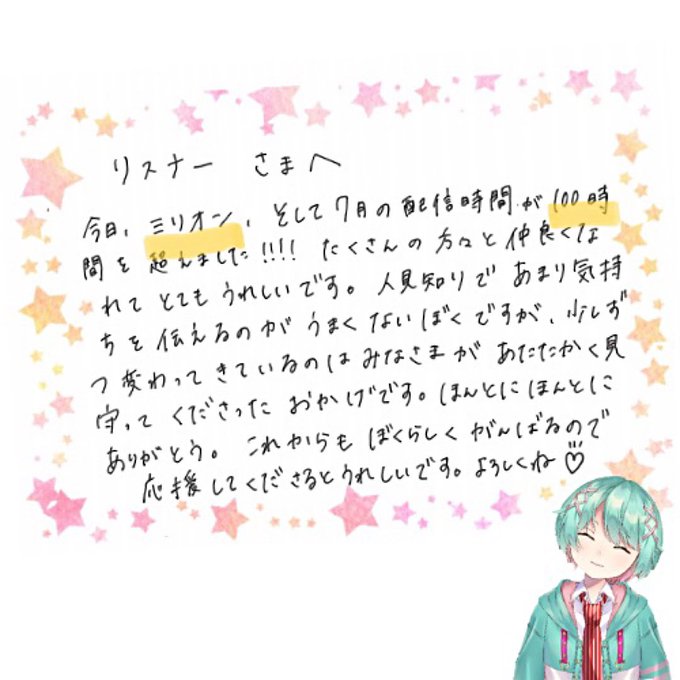 リスナー さまへ
今日、ミリオン、そして7月の配信時間が100時
間を超えました!!!! たくさんの方々と仲良くな
れてとてもうれしいです。人見知りであまり気持
ちを伝えるのがうまくないぼくですが、少しず
つ変わってきているのはみなさまがあたたかく見
守ってくださったおかげです。ほんとにほんとに
ありがとう。これからもぼくらしくがんばるので
応援してくださるとうれしいです。よろしくね♡